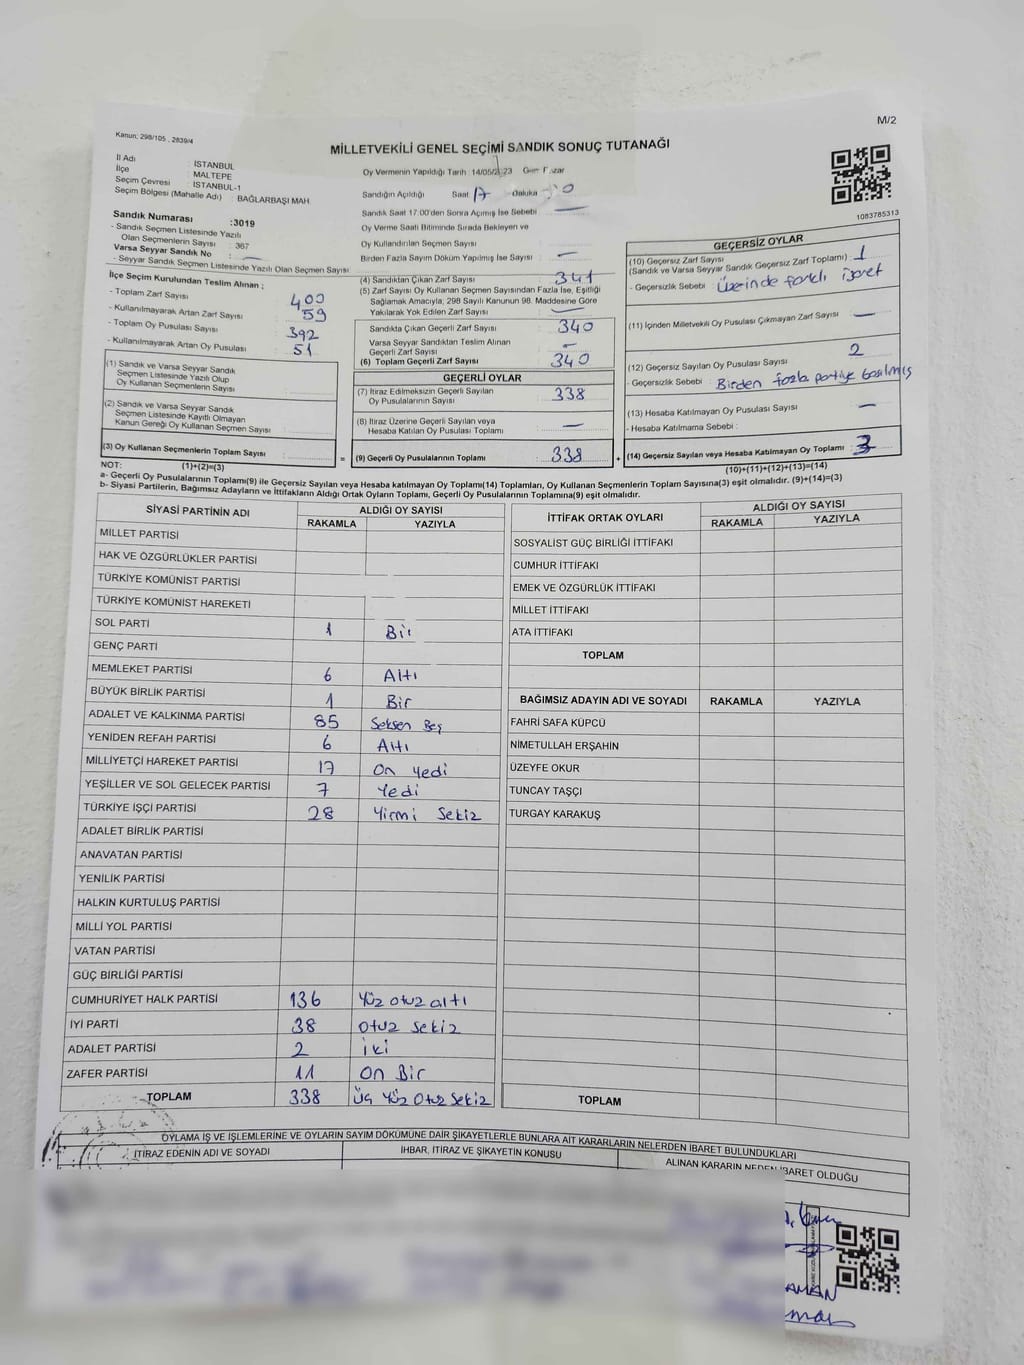 M/2
Kanun: 298/105 , 2839/4
MİLLETVEKİLİ GENEL SEÇİMİ SANDIK SONUÇ TUTANAĞI
İl Adı : İSTANBUL
İlçe : MALTEPE
Seçim Çevresi : İSTANBUL-1
Seçim Bölgesi (Mahalle Adı) : BAĞLARBAŞI MAH
Oy Vermenin Yapıldığı Tarih : 14/05/ 23
Sandığın Açıldığı Saat 17 Dakika
Sandık Saat 17:00'den Sonra Açımış İse Sebebi —
Oy Verme Saati Bitiminde Sırada Bekleyen ve
Oy Kullandırılan Seçmen Sayısı
Birden Fazla Sayım Döküm Yapılmış İse Sayısı : —
1083785313
Sandık Numarası :3019
- Sandık Seçmen Listesinde Yazılı
Olan Seçmenlerin Sayısı : 367
Varsa Seyyar Sandık No : —
- Seyyar Sandık Seçmen Listesinde Yazılı Olan Seçmen Sayısı
İlçe Seçim Kurulundan Teslim Alınan ;
- Toplam Zarf Sayısı : 400
- Kullanılmayarak Artan Zarf Sayısı : 59
- Toplam Oy Pusulası Sayısı : 392
- Kullanılmayarak Artan Oy Pusulası : 51
(1) Sandık ve Varsa Seyyar Sandık
Seçmen Listesinde Yazılı Olup
Oy Kullanan Seçmenlerin Sayısı :
(2) Sandık ve Varsa Seyyar Sandık
Seçmen Listesinde Kayıtlı Olmayan
Kanun Gereği Oy Kullanan Seçmen Sayısı :
(3) Oy Kullanan Seçmenlerin Toplam Sayısı :
(1)+(2)=(3)
(4) Sandıktan Çıkan Zarf Sayısı : 341
(5) Zarf Sayısı Oy Kullanan Seçmen Sayısından Fazla İse, Eşitliği
Sağlamak Amacıyla, 298 Sayılı Kanunun 98. Maddesine Göre
Yakılarak Yok Edilen Zarf Sayısı : —
Sandıkta Çıkan Geçerli Zarf Sayısı : 340
Varsa Seyyar Sandıktan Teslim Alınan
Geçerli Zarf Sayısı : —
(6) Toplam Geçerli Zarf Sayısı : 340
GEÇERLİ OYLAR
(7) İtiraz Edilmeksizin Geçerli Sayılan
Oy Pusulalarının Sayısı : 338
(8) İtiraz Üzerine Geçerli Sayılan veya
Hesaba Katılan Oy Pusulası Toplamı : —
= (9) Geçerli Oy Pusulalarının Toplamı : 338
GEÇERSİZ OYLAR
(10) Geçersiz Zarf Sayısı
(Sandık ve Varsa Seyyar Sandık Geçersiz Zarf Toplamı) : 1
- Geçersizlik Sebebi : Üzerinde farklı işaret
(11) İçinden Milletvekili Oy Pusulası Çıkmayan Zarf Sayısı : —
(12) Geçersiz Sayılan Oy Pusulası Sayısı : 2
- Geçersizlik Sebebi : Birden fazla partiye basılmış
(13) Hesaba Katılmayan Oy Pusulası Sayısı : —
- Hesaba Katılmama Sebebi :
+ (14) Geçersiz Sayılan veya Hesaba Katılmayan Oy Toplamı : 3
(10)+(11)+(12)+(13)=(14)
NOT:
a- Geçerli Oy Pusulalarının Toplamı(9) ile Geçersiz Sayılan veya Hesaba katılmayan Oy Toplamı(14) Toplamları, Oy Kullanan Seçmenlerin Toplam Sayısına(3) eşit olmalıdır. (9)+(14)=(3)
b- Siyasi Partilerin, Bağımsız Adayların ve İttifakların Aldığı Ortak Oyların Toplamı, Geçerli Oy Pusulalarının Toplamına(9) eşit olmalıdır.
SİYASİ PARTİNİN ADI ALDIĞI OY SAYISI
RAKAMLA YAZIYLA
MİLLET PARTİSİ
HAK VE ÖZGÜRLÜKLER PARTİSİ
TÜRKİYE KOMÜNİST PARTİSİ
TÜRKİYE KOMÜNİST HAREKETİ
SOL PARTİ 1 Bir
GENÇ PARTİ
MEMLEKET PARTİSİ 6 Altı
BÜYÜK BİRLİK PARTİSİ 1 Bir
ADALET VE KALKINMA PARTİSİ 85 Seksen Beş
YENİDEN REFAH PARTİSİ 6 Altı
MİLLİYETÇİ HAREKET PARTİSİ 17 On yedi
YEŞİLLER VE SOL GELECEK PARTİSİ 7 Yedi
TÜRKİYE İŞÇİ PARTİSİ 28 Yirmi Sekiz
ADALET BİRLİK PARTİSİ
ANAVATAN PARTİSİ
YENİLİK PARTİSİ
HALKIN KURTULUŞ PARTİSİ
MİLLİ YOL PARTİSİ
VATAN PARTİSİ
GÜÇ BİRLİĞİ PARTİSİ
CUMHURİYET HALK PARTİSİ 136 Yüz otuz altı
İYİ PARTİ 38 Otuz Sekiz
ADALET PARTİSİ 2 iki
ZAFER PARTİSİ 11 On Bir
TOPLAM 338 Üç Yüz Otuz Sekiz
İTTİFAK ORTAK OYLARI ALDIĞI OY SAYISI
RAKAMLA YAZIYLA
SOSYALİST GÜÇ BİRLİĞİ İTTİFAKI
CUMHUR İTTİFAKI
EMEK VE ÖZGÜRLÜK İTTİFAKI
MİLLET İTTİFAKI
ATA İTTİFAKI
TOPLAM
BAĞIMSIZ ADAYIN ADI VE SOYADI RAKAMLA YAZIYLA
FAHRİ SAFA KÜPCÜ
NİMETULLAH ERŞAHİN
ÜZEYFE OKUR
TUNCAY TAŞÇI
TURGAY KARAKUŞ
TOPLAM
OYLAMA İŞ VE İŞLEMLERİNE VE OYLARIN SAYIM DÖKÜMÜNE DAİR ŞİKAYETLERLE BUNLARA AİT KARARLARIN NELERDEN İBARET BULUNDUKLARI
İTİRAZ EDENİN ADI VE SOYADI İHBAR, İTİRAZ VE ŞİKAYETİN KONUSU ALINAN KARARIN NEDEN İBARET OLDUĞU